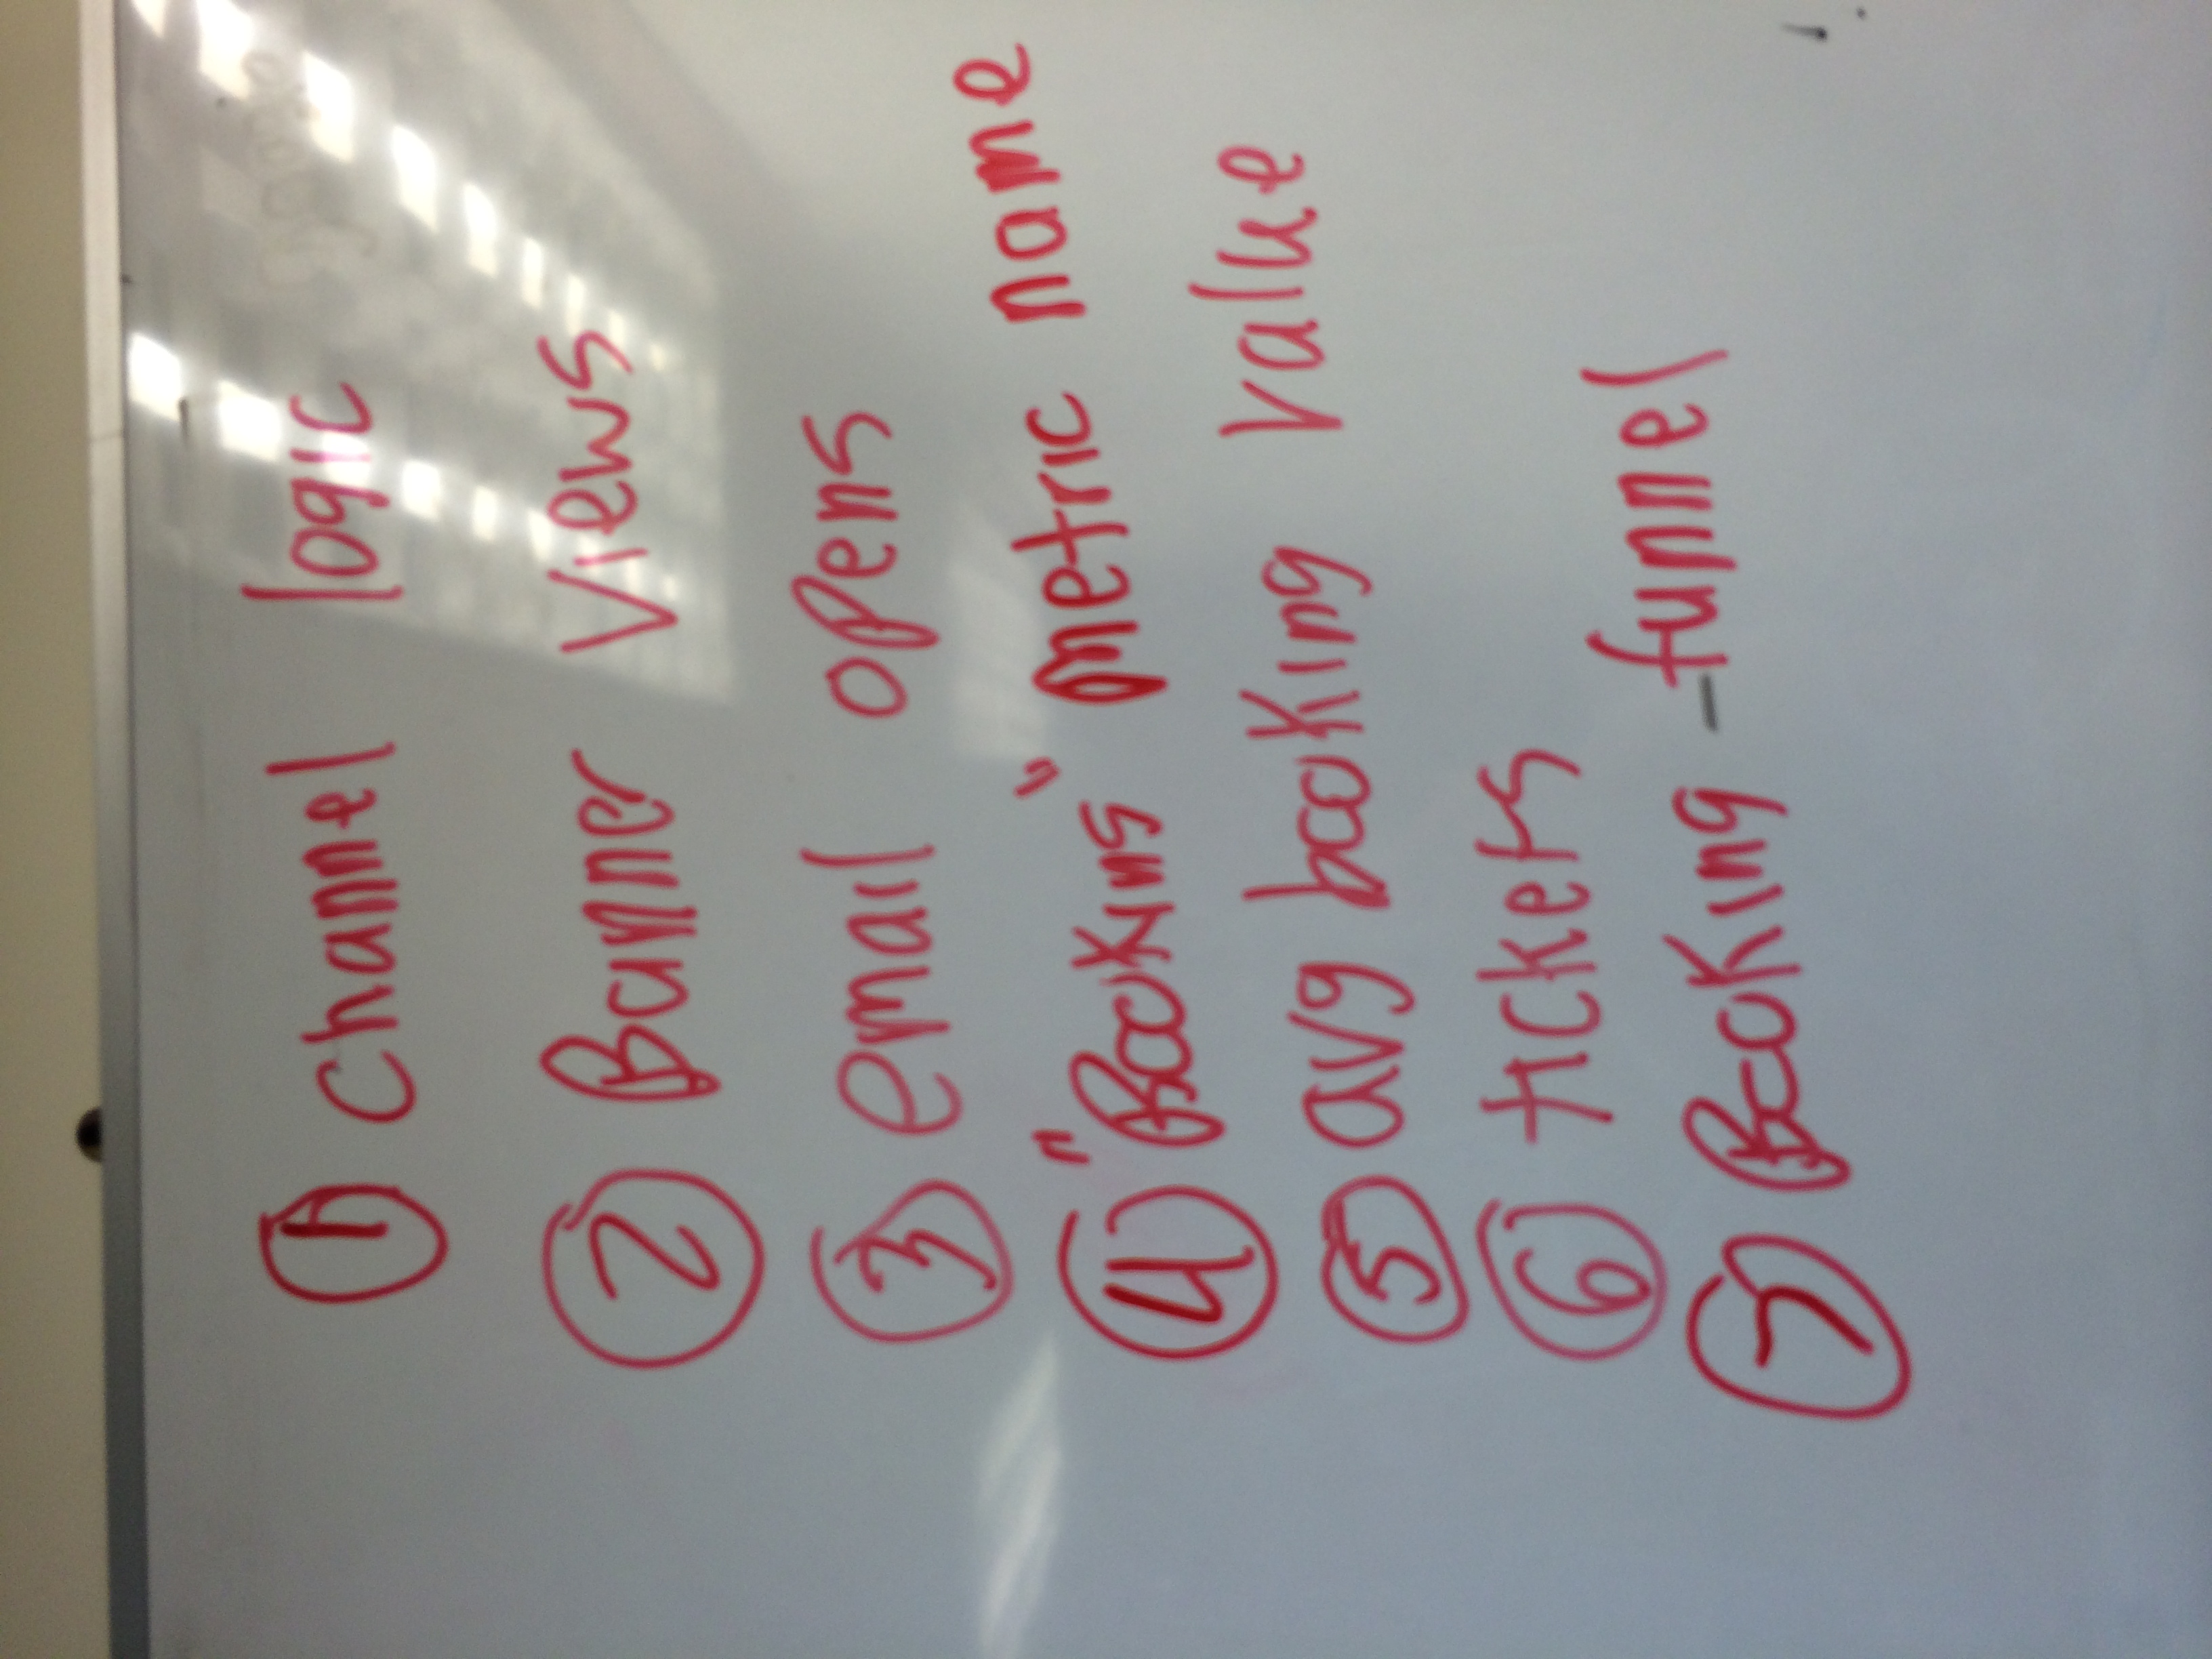 ① channel logic
② Banner views
③ email opens
④ "Bookins" metric name
⑤ avg booking value
⑥ tickets
⑦ Booking - funnel